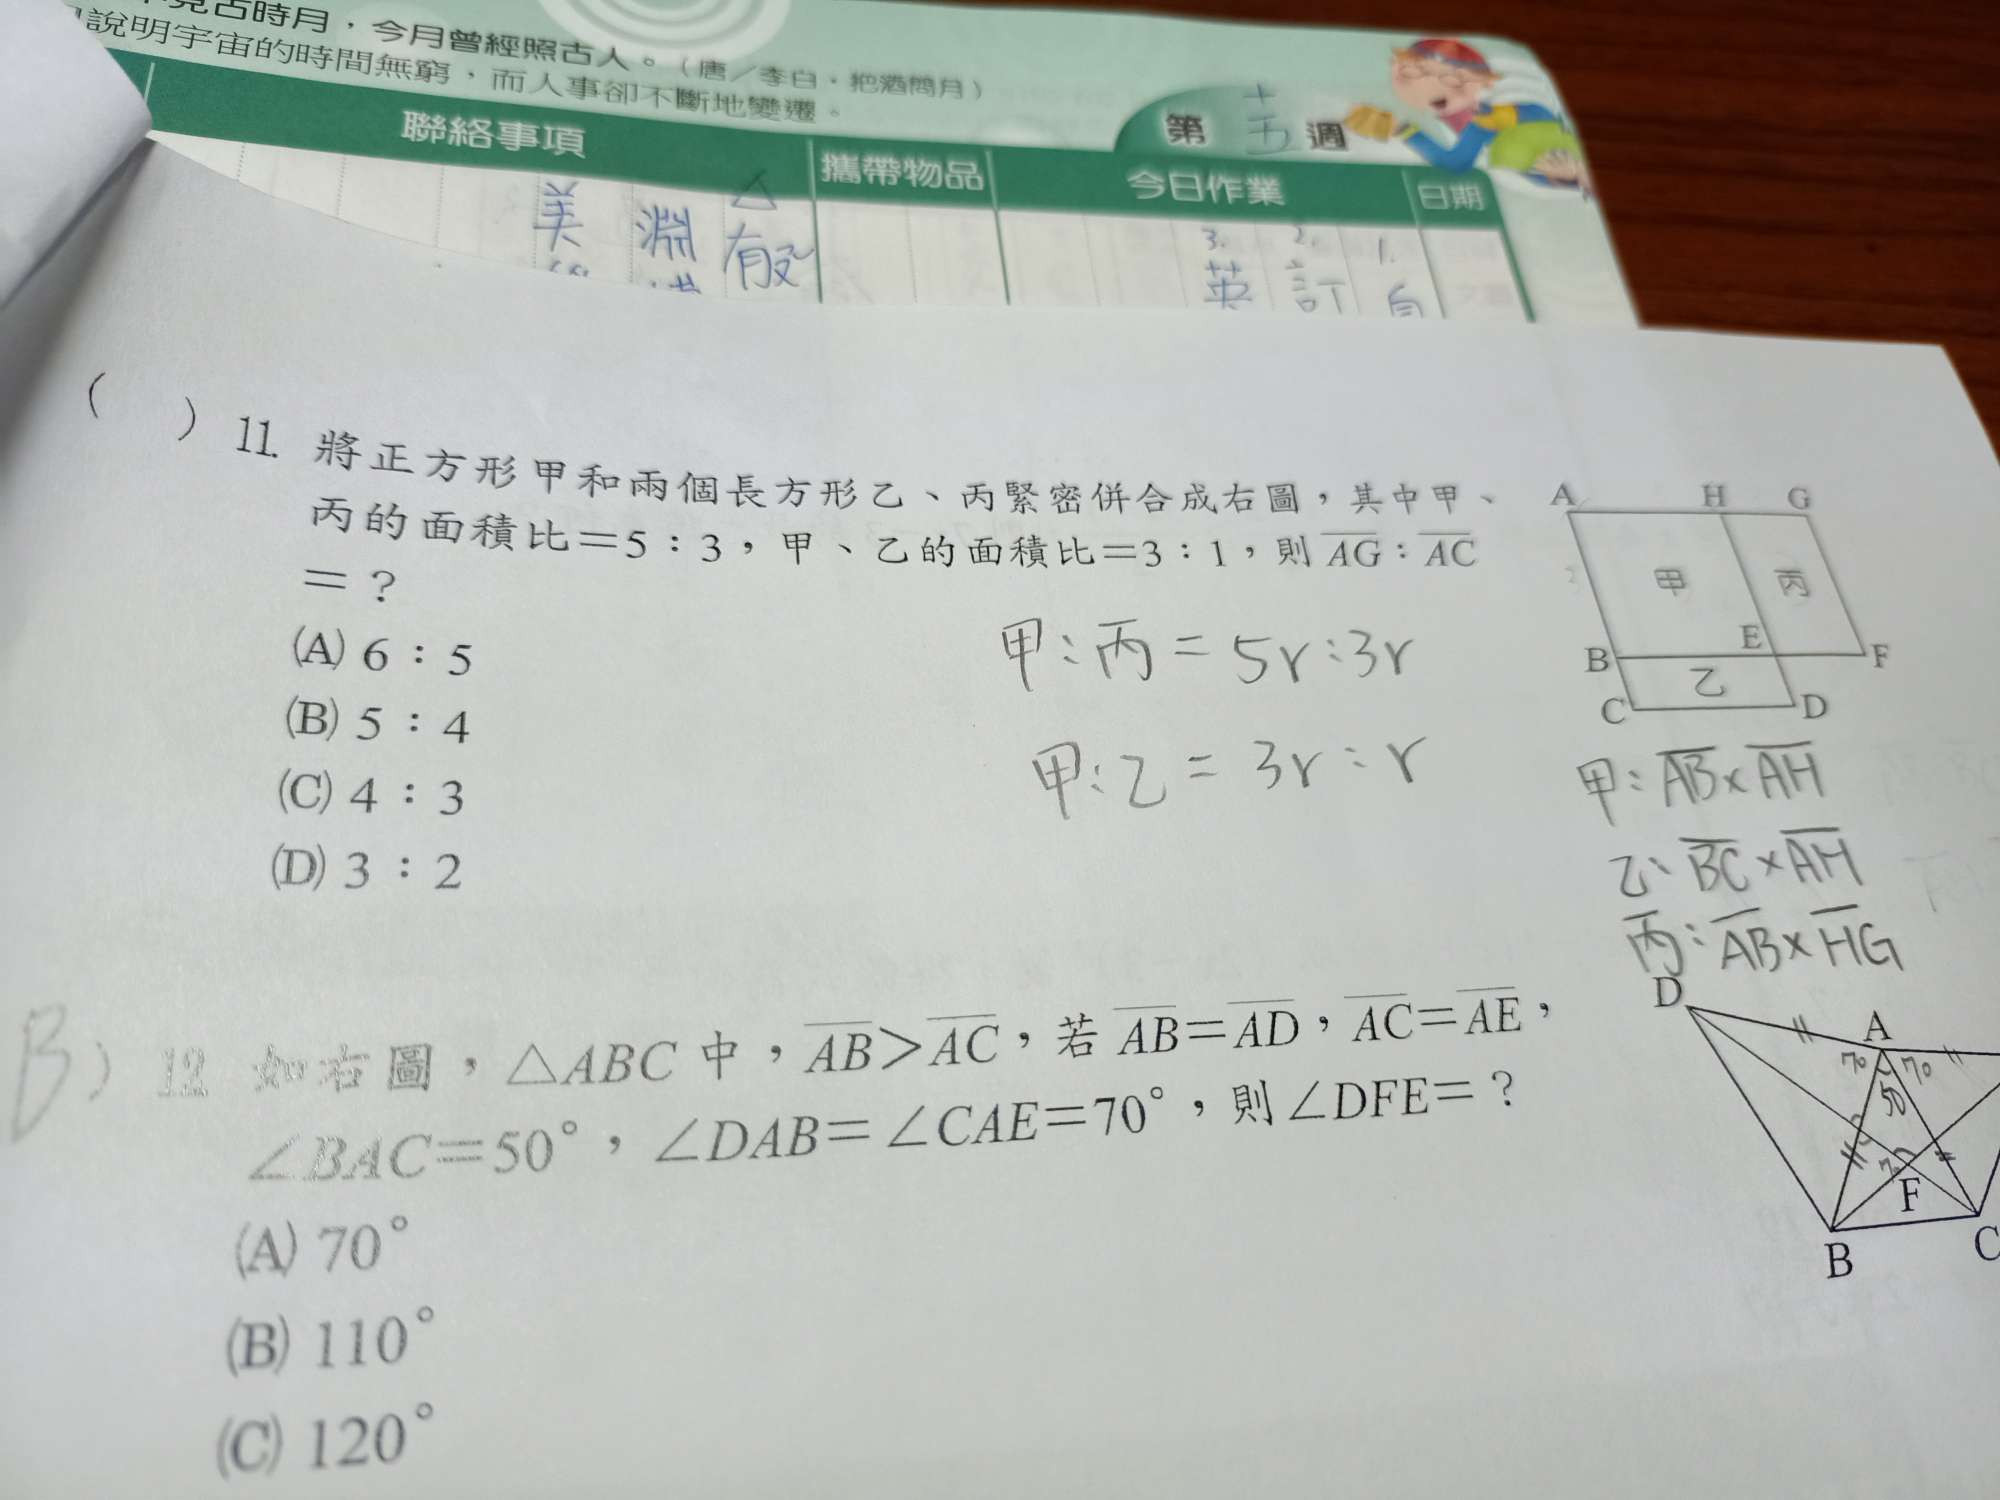 見古時月，今月曾經照古人。（唐／李白·把酒問月）
說明宇宙的時間無窮，而人事卻不斷地變遷。
第十五週
聯絡事項 攜帶物品 今日作業 日期
△ 3. 2. 1.
美 淵 有 英 訂
(　) 11. 將正方形甲和兩個長方形乙、丙緊密併合成右圖，其中甲、
丙的面積比＝5：3，甲、乙的面積比＝3：1，則 \overline{AG}：\overline{AC}
＝？
(A) 6：5
(B) 5：4
(C) 4：3
(D) 3：2
A H G
甲 丙
B E F
乙
C D
甲:丙 = 5r:3r
甲:乙 = 3r:r
甲:\overline{AB}×\overline{AH}
乙、\overline{BC}×\overline{AH}
丙:\overline{AB}×\overline{HG}
B ) 12. 如右圖，△ABC 中，\overline{AB}＞\overline{AC}，若 \overline{AB}＝\overline{AD}，\overline{AC}＝\overline{AE}，
∠BAC＝50°，∠DAB＝∠CAE＝70°，則∠DFE＝？
(A) 70°
(B) 110°
(C) 120°
D A
70 70
50
F
B C